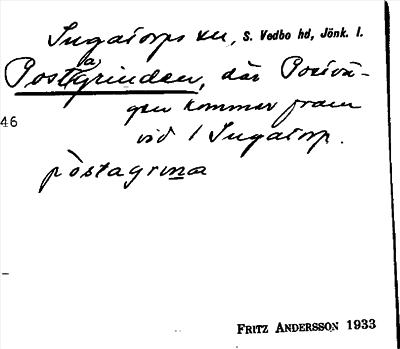 Ingatorps sn, S. Vedbo hd, Jönk. l.
Post(a)grinden, där Postvä-
gen kommer fram
46
vid / Ingatorp.
pòstagrɩna
FRITZ ANDERSSON 1933